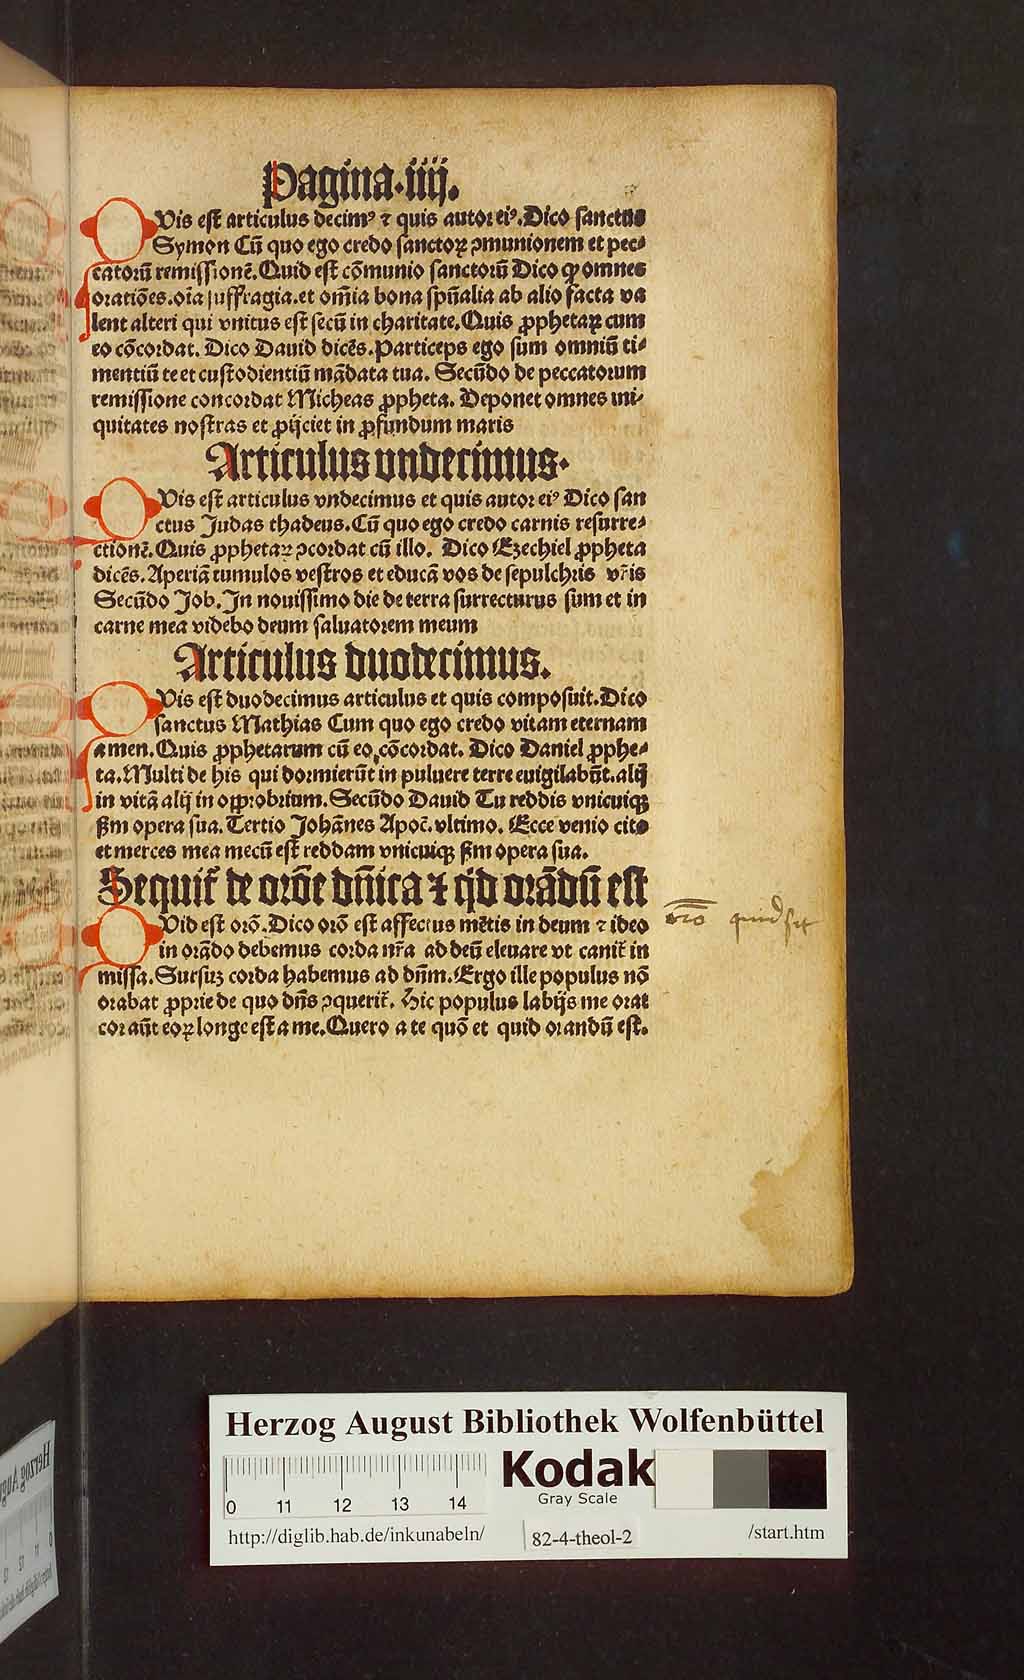 Pagina.iiij.
QVis est articulus decimꝰ ⁊ quis autor eiꝰ. Dico sanctus
Symon Cū quo ego credo sanctoꝝ ꝯmunionem et pec⸗
catorū remissionē. Quid est cōmunio sanctorū Dico ꝙ omnes
oratiōes. oīa suffragia. et om̄ia bona spūalia ab alio facta va
lent alteri qui vnitus est secū in charitate. Quis ꝓphetaꝝ cum
eo cōcordat. Dico Dauid dicēs. Particeps ego sum omniū ti⸗
mentiū te et custodientiū mādata tua. Secūdo de peccatorum
remissione concordat Micheas ꝓpheta. Deponet omnes ini⸗
quitates nostras et ꝓijciet in ꝓfundum maris
Articulus vndecimus.
QVis est articulus vndecimus et quis autor eiꝰ Dico san
ctus Judas thadeus. Cū quo ego credo carnis resurre⸗
ctionē. Quis ꝓphetaꝝ ꝯcordat cū illo. Dico Ezechiel ꝓpheta
dicēs. Aperiā tumulos vestros et educā vos de sepulchris vr̄is
Secūdo Job. In nouissimo die de terra surrecturus sum et in
carne mea videbo deum saluatorem meum
Articulus duodecimus.
QVis est duodecimus articulus et quis composuit. Dico
sanctus Mathias Cum quo ego credo vitam eternam
amen. Quis ꝓphetarum cū eo cōcordat. Dico Daniel ꝓphe⸗
ta. Multi de his qui dormierūt in puluere terre euigilabūt. alij
in vitā alij in opprobrium. Secūdo Dauid Tu reddis vnicuiqꝫ
ẜm opera sua. Tertio Johānes Apoc̄. vltimo. Ecce venio cito
et merces mea mecū est reddam vnicuiqꝫ ẜm opera sua.
Sequit᷑ de orōne dn̄ica ⁊ qd orādū est
QVid est orō. Dico orō est affectus mētis in deum ⁊ ideo
in orādo debemus corda nr̄a ad deū eleuare vt canit᷑ in
missa. Sursuꝫ corda habemus ad dn̄m. Ergo ille populus nō
orabat ꝓprie de quo dn̄s ꝯquerit᷑. Hic populus labijs me orat
cor aūt eoꝝ longe est a me. Quero a te quō et quid orandū est.
orō quid sit
Herzog August Bibliothek Wolfenbüttel
Kodak
Gray Scale
0 11 12 13 14
http://diglib.hab.de/inkunabeln/ 82-4-theol-2 /start.htm